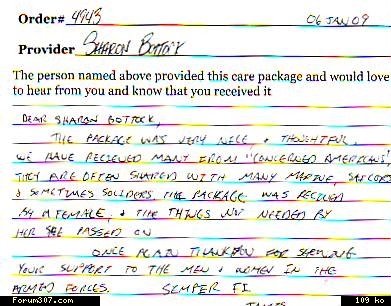 Order# 4943 06 JAN 09
Provider SHARON BOTTOCK
The person named above provided this care package and would love
to hear from you and know that you received it
DEAR SHARON BOTTOCK,
THE PACKAGE WAS VERY NICE, & THOUGHTFUL.
WE HAVE RECIEVED MANY FROM "CONCERNED AMERICANS",
THEY ARE OFTEN SHARED WITH MANY MARINE, SAILORS
& SOMETIMES SOLIDERS. THE PACKAGE WAS RECIEVED
BY A FEMALE, & THE THINGS NOT NEEDED BY
HER PASSED ON
ONCE AGAIN THANK YOU FOR SHOWING
YOUR SUPPORT TO THE MEN & WOMEN IN THE
ARMED FORCES. SEMPER FI
Forum307.com 109 ko